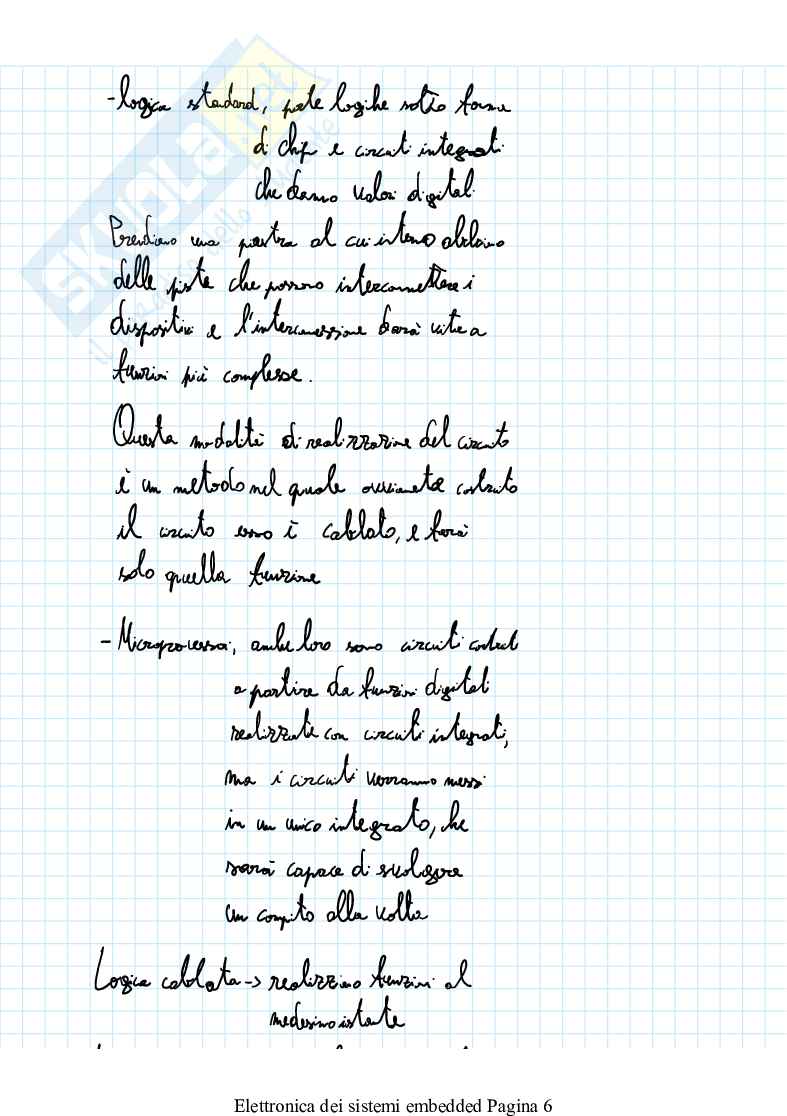 - logica standard, porte logiche sotto forma
di chip e circuiti integrati
che danno valori digitali
Prendiamo una piastra al cui interno abbiamo
delle piste che possono interconnettere i
dispositivi e l'interconnessione darà vita a
funzioni più complesse.
Questa modalità di realizzazione del circuito
è un metodo nel quale ovviamente costruito
il circuito esso è cablato, e farà
solo quella funzione
- Microprocessori, anche loro sono circuiti costruiti
a partire da funzioni digitali
realizzate con circuiti integrati,
ma i circuiti verranno messi
in un unico integrato, che
sarà capace di svolgere
un compito alla volta
Logica cablata -> realizziamo funzioni al
medesimo istante
Elettronica dei sistemi embedded Pagina 6
SKUOLA.net